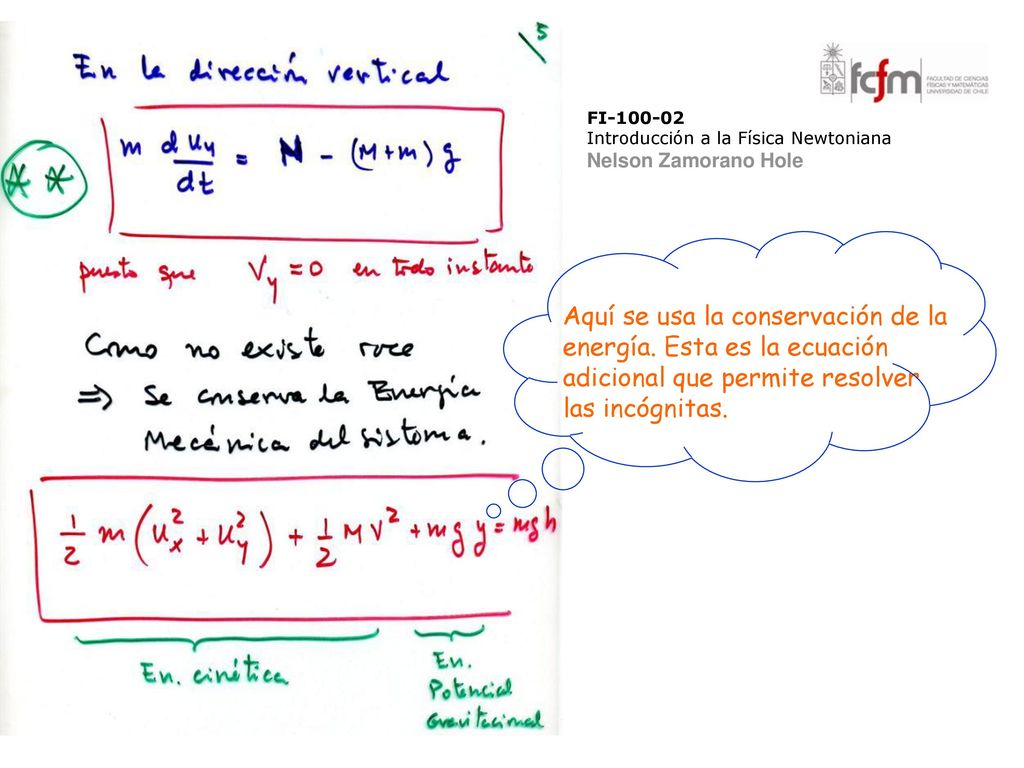 5
En la dirección vertical
m d u_y / dt = N - (M+m) g
* *
puesto que V_y = 0 en todo instante
Como no existe roce
=> Se conserva la Energía
Mecánica del sistema.
1/2 m (u_x^2 + u_y^2) + 1/2 M V^2 + m g y = mgh
En. cinética
En.
Potencial
Gravitacional
fcfm
FACULTAD DE CIENCIAS
FÍSICAS Y MATEMÁTICAS
UNIVERSIDAD DE CHILE
FI-100-02
Introducción a la Física Newtoniana
Nelson Zamorano Hole
Aquí se usa la conservación de la
energía. Esta es la ecuación
adicional que permite resolver
las incógnitas.